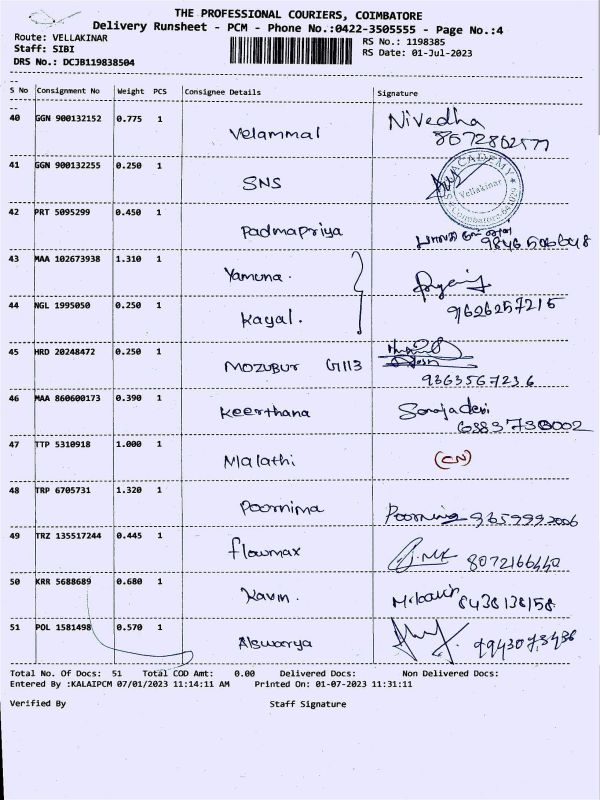 THE PROFESSIONAL COURIERS, COIMBATORE
Delivery Runsheet - PCM - Phone No.:0422-3505555 - Page No.:4
Route: VELLAKINAR
RS No.: 1198385
Staff: SIBI
RS Date: 01-Jul-2023
DRS No.: DCJB119838504
S No Consignment No Weight PCS Consignee Details Signature
40 GGN 900132152 0.775 1 Velammal Nivedha
8072862577
41 GGN 900132255 0.250 1 SNS ACADEMY Vellakinar
42 PRT 5095299 0.450 1 Padmapriya
43 MAA 102673938 1.310 1 Yamuna.
44 NGL 1995050 0.250 1 Kayal. 9626257215
45 HRD 20248472 0.250 1 Mozubur G113
9363567236
46 MAA 860600173 0.390 1 Keerthana Sarojadevi
6383730002
47 TTP 5310918 1.000 1 Malathi (CN)
48 TRP 6705731 1.320 1 Poornima Poornima 9659992006
49 TRZ 135517244 0.445 1 flowmax 8072166440
50 KRR 5688689 0.680 1 Kavin. 8438138158
51 POL 1581498 0.570 1 Aiswarya 9943073436
Total No. Of Docs: 51 Total COD Amt: 0.00 Delivered Docs: Non Delivered Docs:
Entered By :KALAIPCM 07/01/2023 11:14:11 AM Printed On: 01-07-2023 11:31:11
Verified By Staff Signature